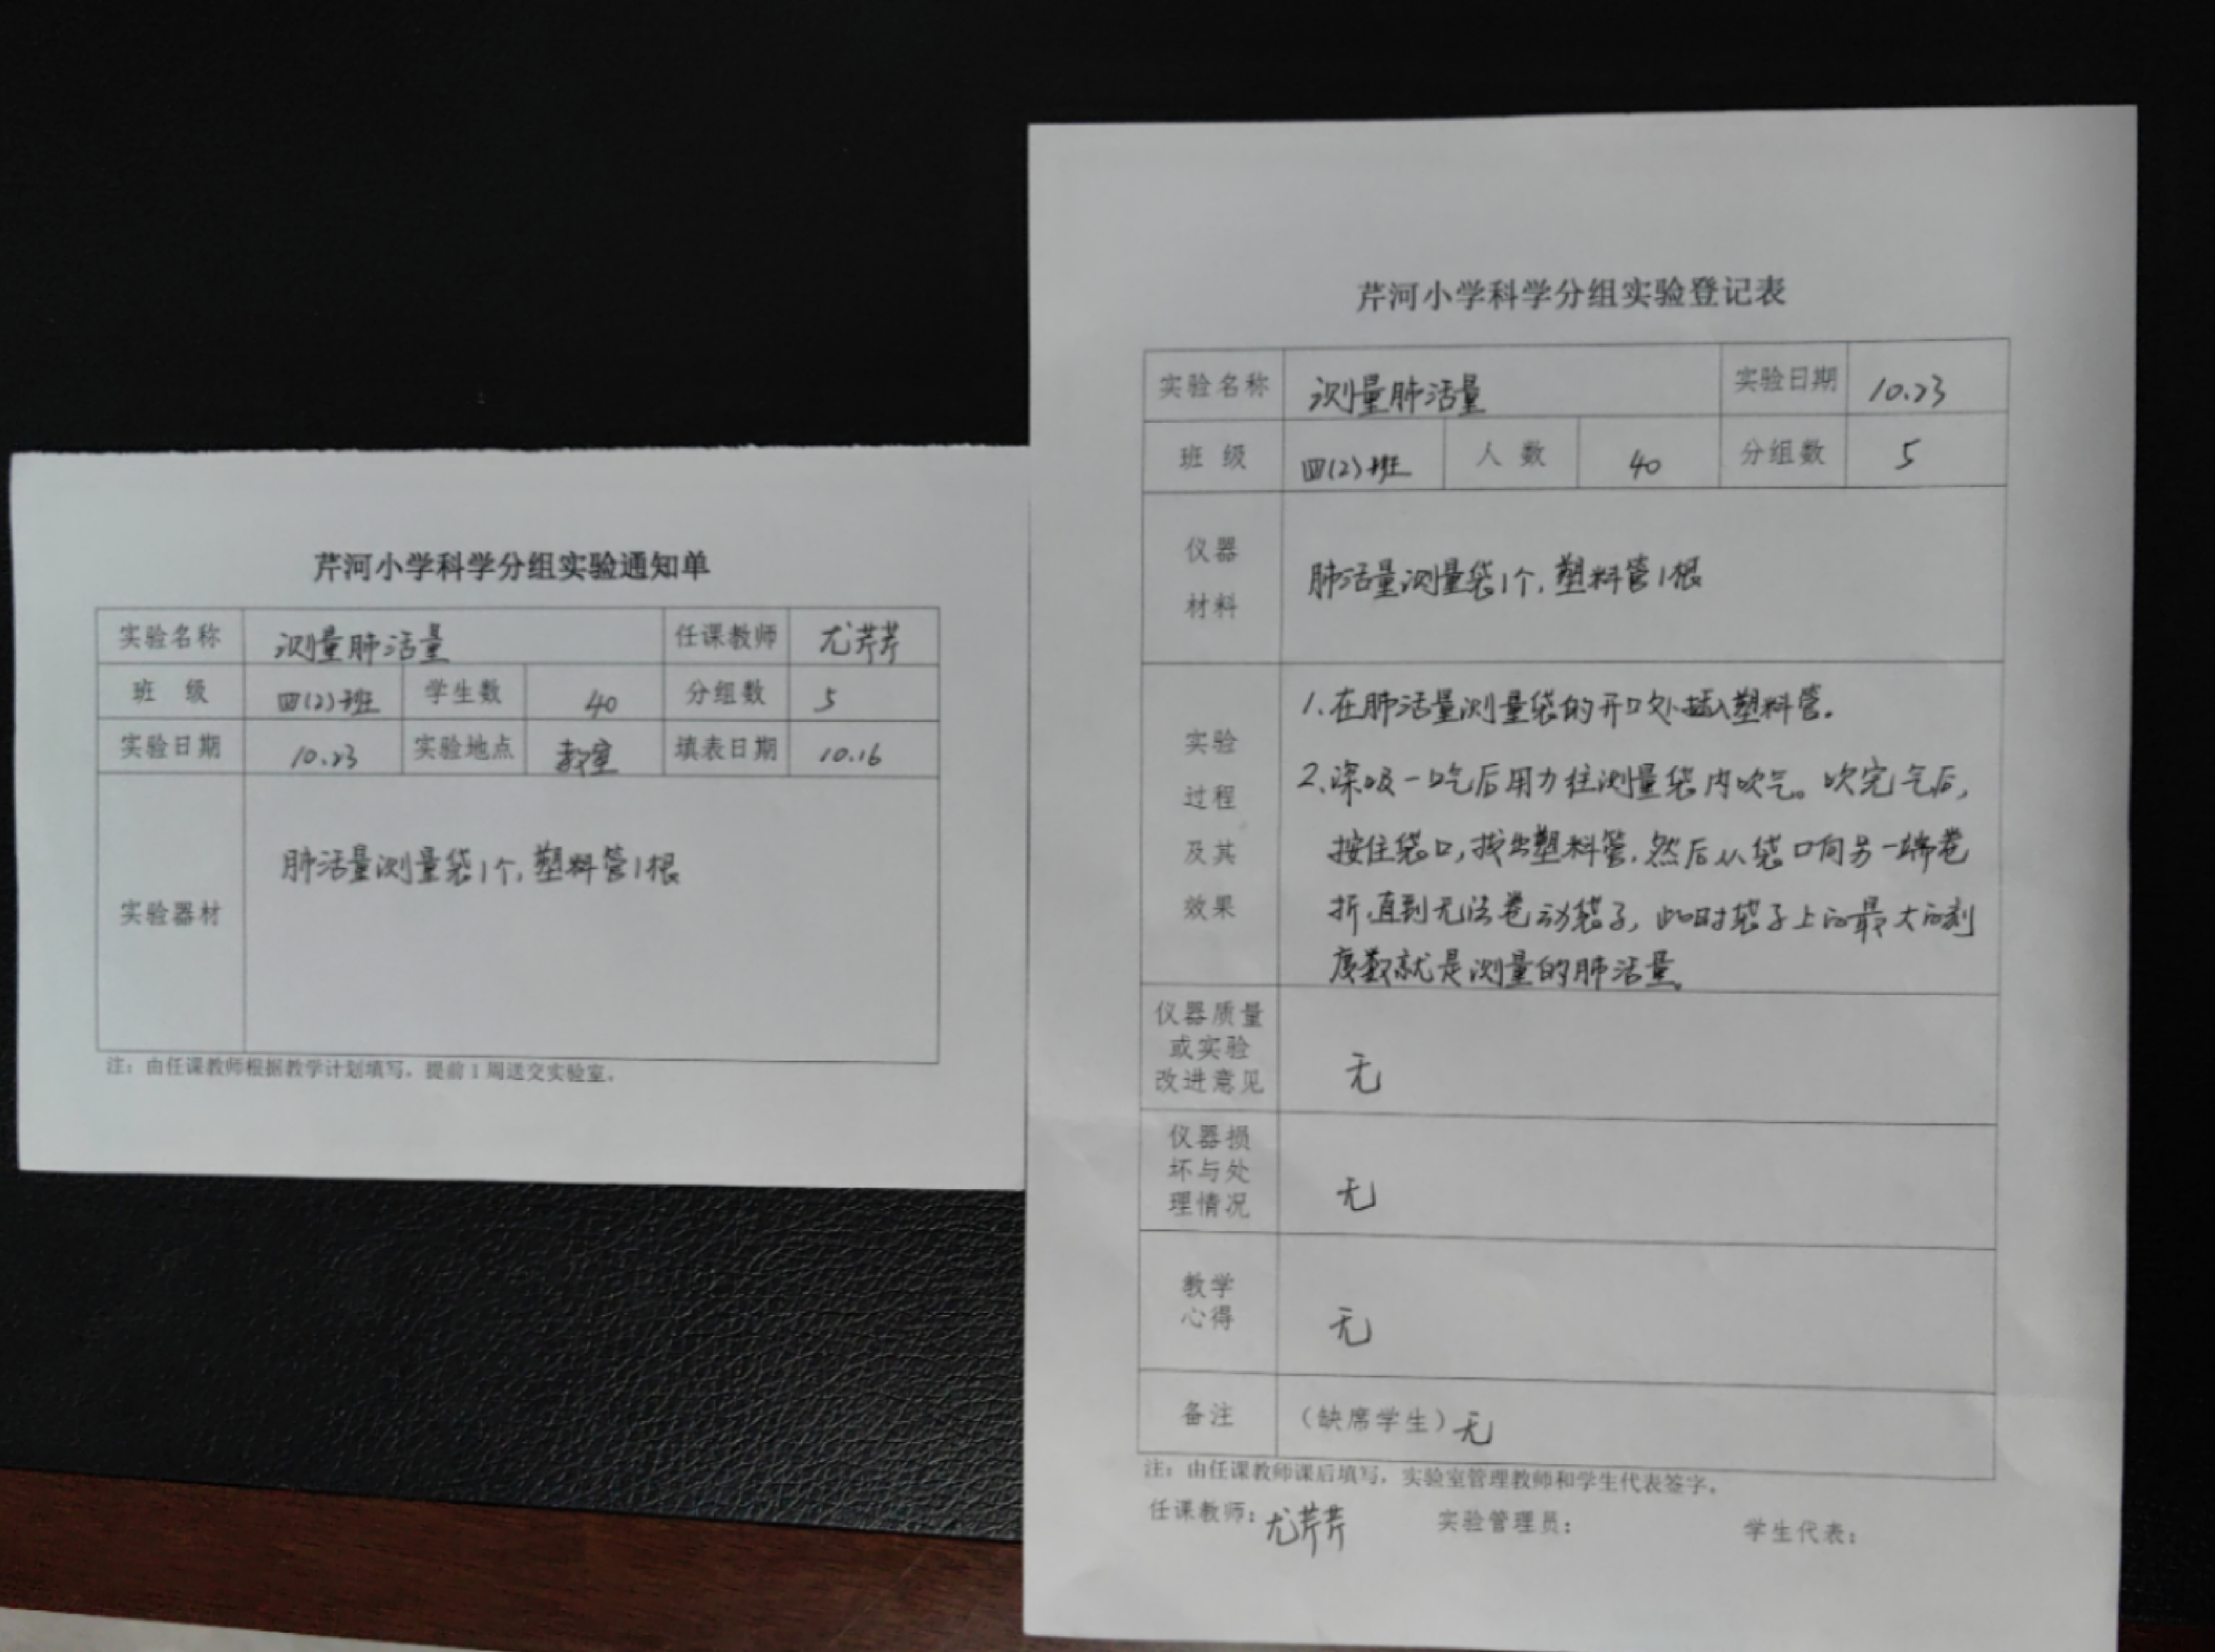 芹河小学科学分组实验通知单
实验名称 测量肺活量 任课教师 尤芹芹
班 级 四(2)班 学生数 40 分组数 5
实验日期 10.23 实验地点 教室 填表日期 10.16
实验器材 肺活量测量袋1个,塑料管1根
注：由任课教师根据教学计划填写，提前1周送交实验室。
芹河小学科学分组实验登记表
实验名称 测量肺活量 实验日期 10.23
班 级 四(2)班 人 数 40 分组数 5
仪器
材料
肺活量测量袋1个,塑料管1根
实验
过程
及其
效果
1.在肺活量测量袋的开口处插入塑料管。
2.深吸一口气后用力往测量袋内吹气。吹完气后,
按住袋口,拔出塑料管,然后从袋口向另一端卷
折,直到无法卷动袋子,此时袋子上的最大的刻
度数就是测量的肺活量。
仪器质量
或实验
改进意见
无
仪器损
坏与处
理情况
无
教学
心得
无
备注 （缺席学生）无
注：由任课教师课后填写，实验室管理教师和学生代表签字。
任课教师：尤芹芹 实验管理员： 学生代表：